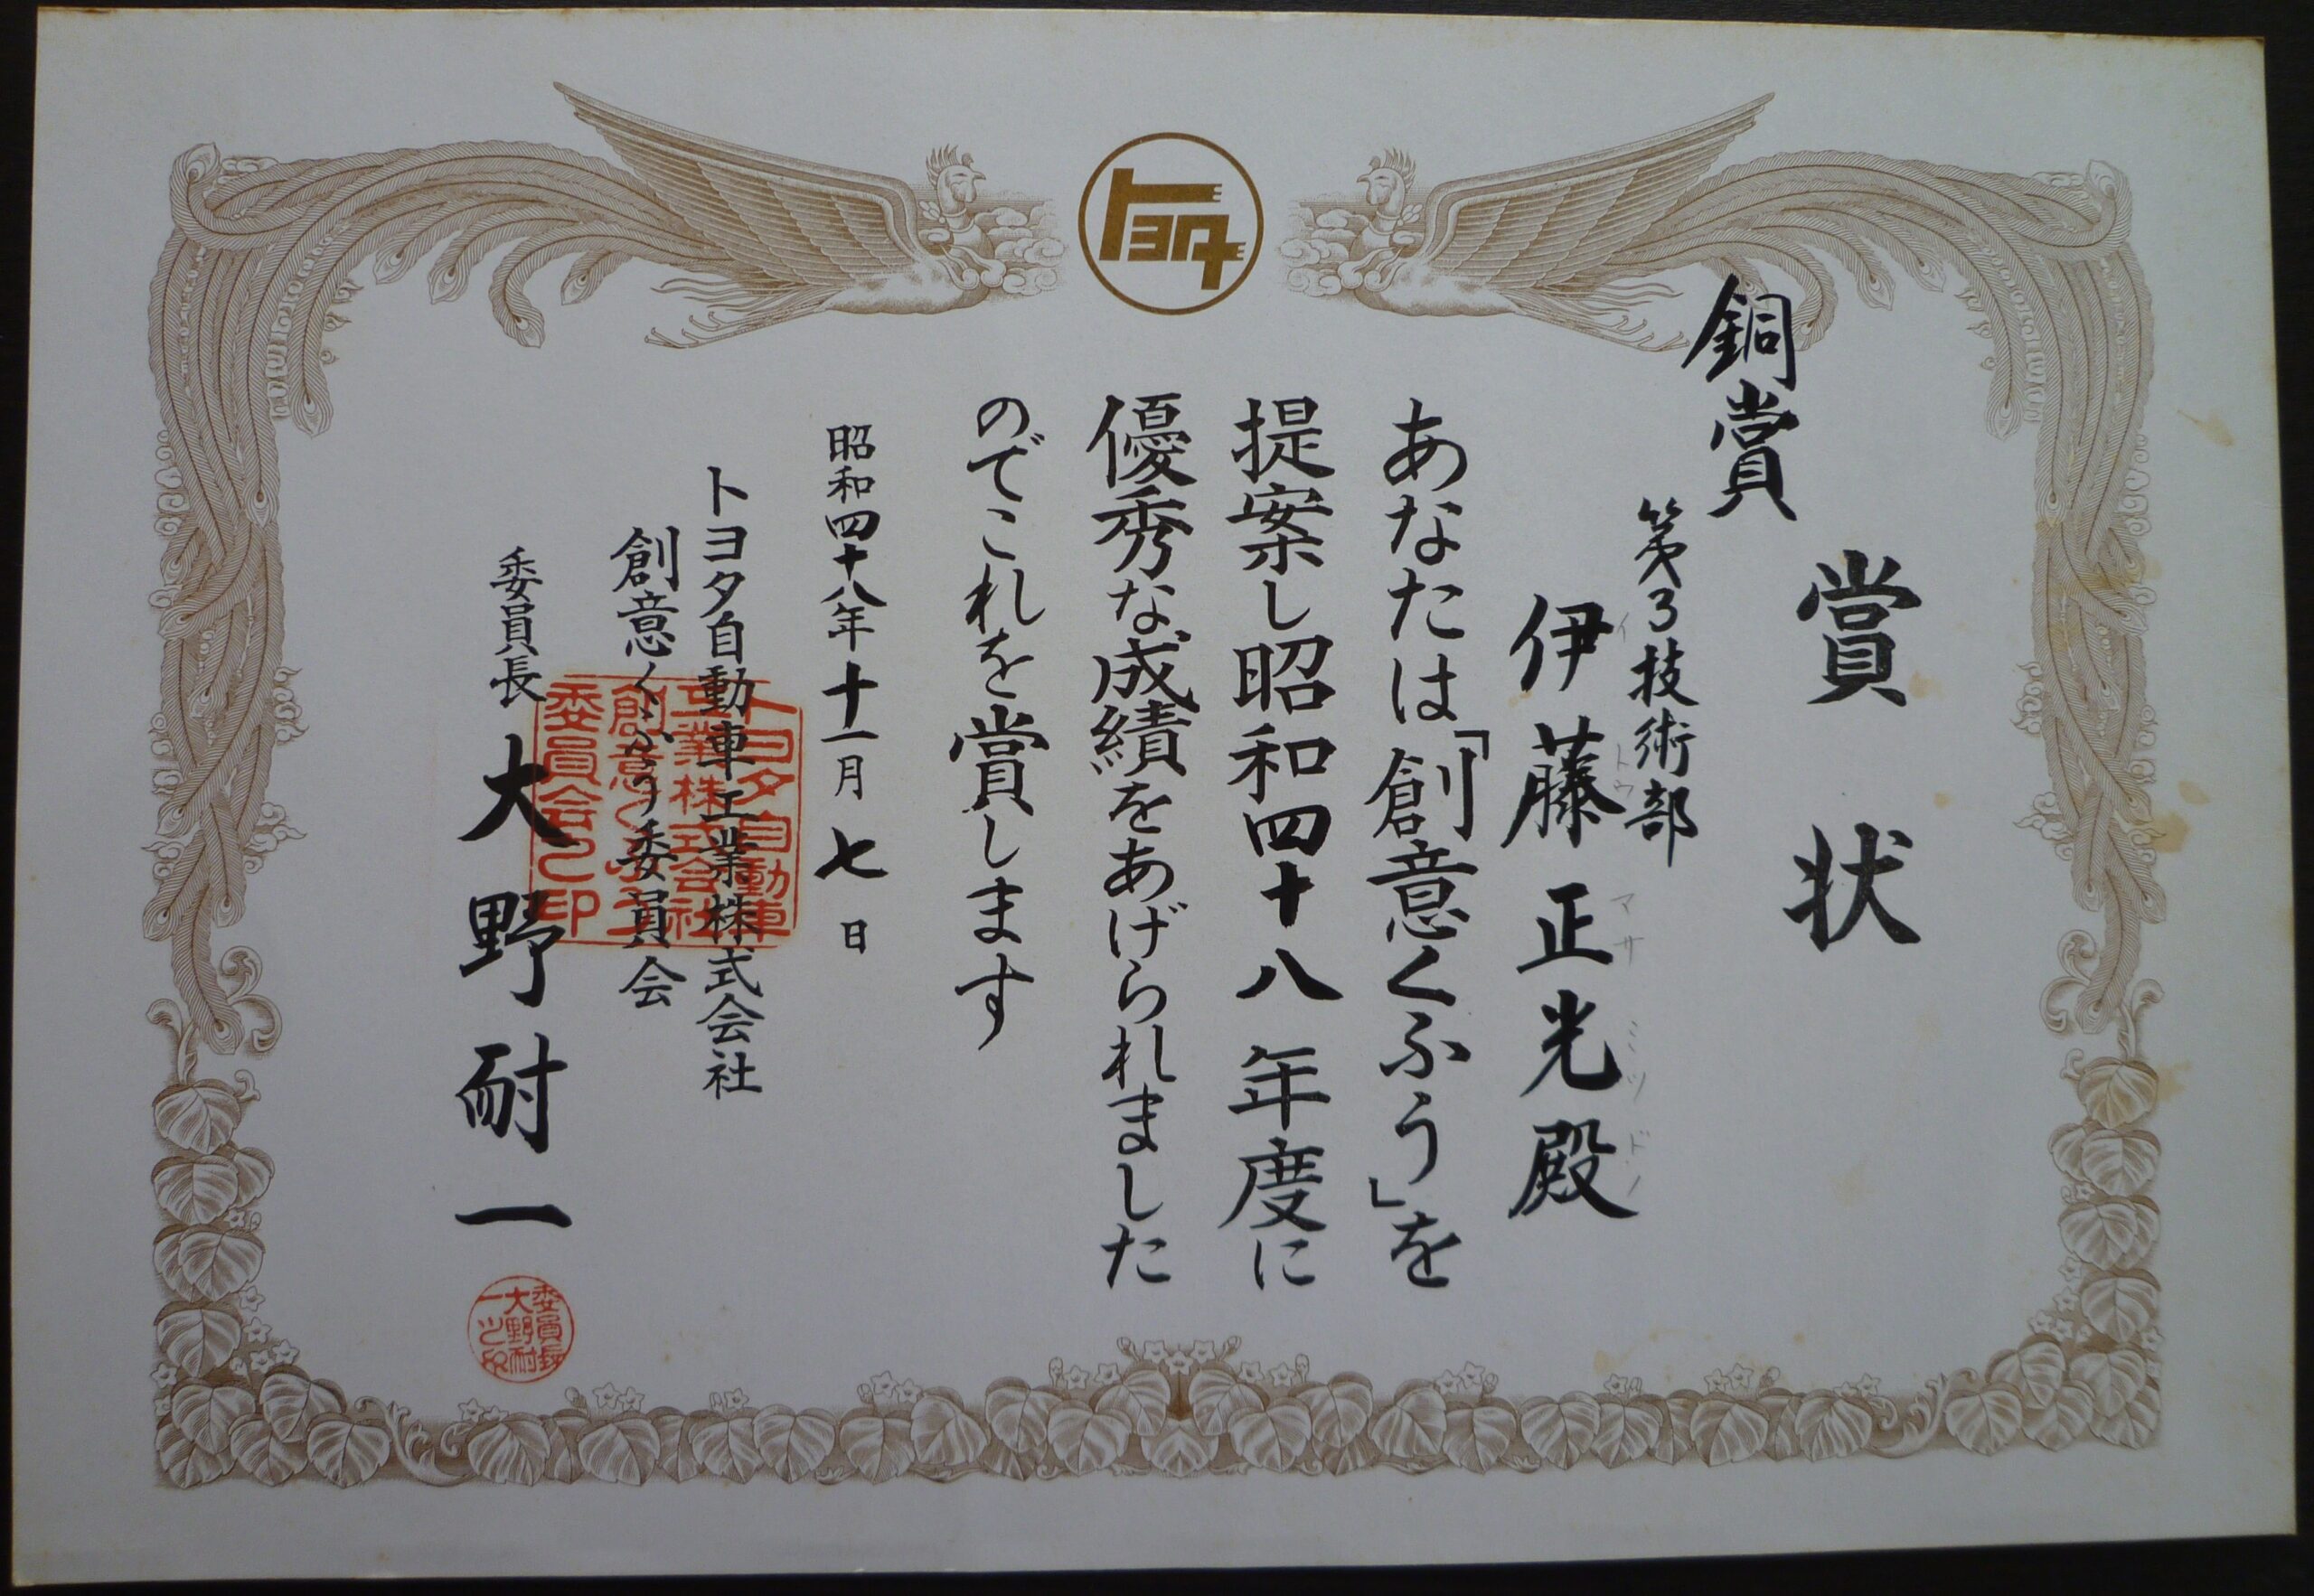 トヨタ
賞状
銅賞
第3技術部
伊藤正光殿
イトウ マサミツドノ
あなたは「創意くふう」を
提案し昭和四十八年度に
優秀な成績をあげられました
のでこれを賞します
昭和四十八年十一月七日
トヨタ自動車工業株式会社
創意くふう委員会
委員長 大野耐一
トヨタ自動車
工業株式会社
創意くふう
委員会之印
委員長
大野耐
一之印